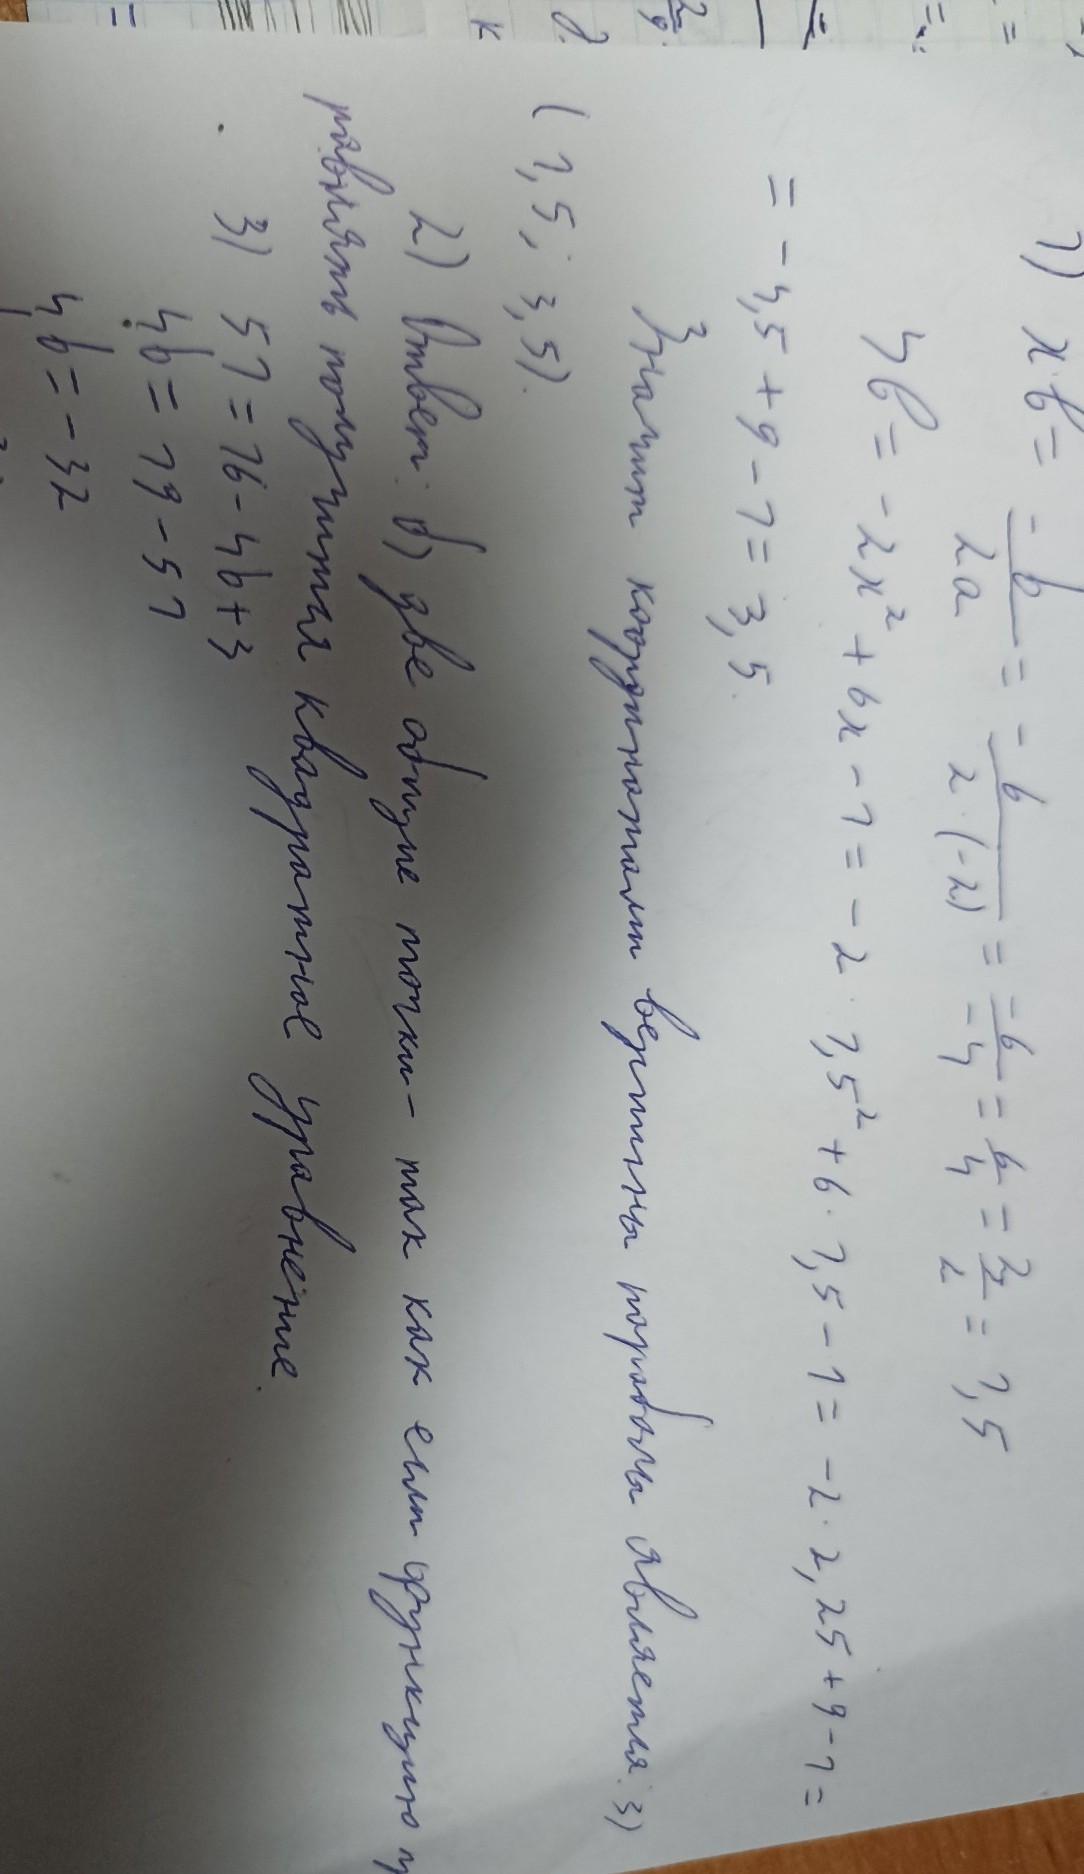 1) xв = -b/2a = -6/2·(-2) = -6/-4 = 6/4 = 3/2 = 1,5
yв = -2x² + 6x - 1 = -2 · 1,5² + 6 · 1,5 - 1 = -2 · 2,25 + 9 - 1 =
= -4,5 + 9 - 1 = 3,5.
Значит координатами вершины параболы является: 3)
(1,5; 3,5).
2) Ответ: в) две общие точки - так как если функцию
равнять получится квадратное уравнение.
3) 51 = 16 - 4b + 3
4b = 19 - 51
4b = -32